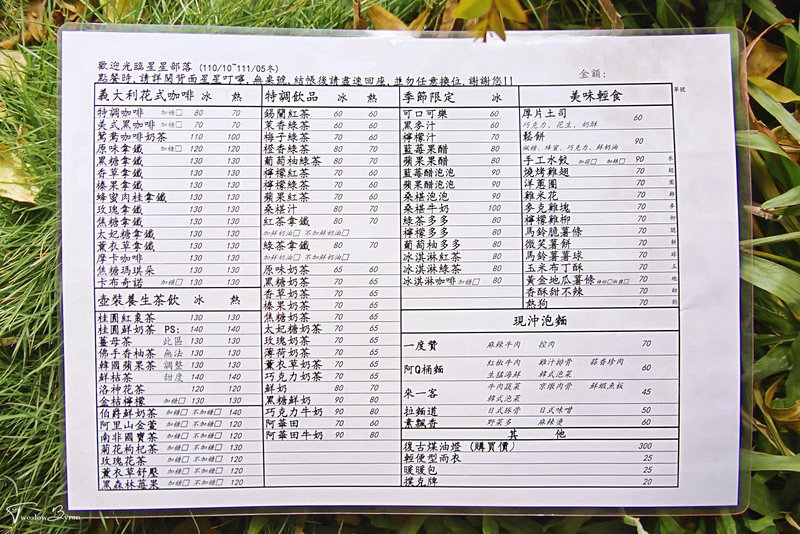 歡迎光臨星星部落 (110/10~111/05冬)
點餐時,請詳閱背面星星叮嚀,無桌號,結帳後請盡速回座,並勿任意換位,謝謝您!!
金額:
單號
義大利花式咖啡 冰 熱
特調咖啡 加糖□ 80 70
美式黑咖啡 加糖□ 70 70
鴛鴦咖啡奶茶 110 100
原味拿鐵 加糖□ 120 120
黑糖拿鐵 130 130
香草拿鐵 130 130
榛果拿鐵 130 130
蜂蜜肉桂拿鐵 130 130
玫瑰拿鐵 130 130
焦糖拿鐵 130 130
太妃糖拿鐵 130 130
薰衣草拿鐵 130 130
摩卡咖啡 130 130
焦糖瑪琪朵 130 130
卡布奇諾 加糖□ 130 130
壺裝養生茶飲 冰 熱
桂圓紅棗茶 130 130
桂圓鮮奶茶 PS: 140 140
薑母茶 此區 130 130
佛手香柚茶 無法 130 130
韓國蘋果茶 調整 130 130
鮮桔茶 甜度 140 140
洛神花茶 120 120
金桔檸檬 加糖□ 130 130
伯爵鮮奶茶 加糖□ 不加糖□ 140
阿里山金萱 加糖□ 不加糖□ 120
南非國寶茶 加糖□ 不加糖□ 120
菊花枸杞茶 加糖□ 不加糖□ 130
玫瑰花茶 加糖□ 不加糖□ 120
薰衣草舒壓 加糖□ 不加糖□ 120
黑森林莓果 加糖□ 不加糖□ 120
特調飲品 冰 熱
錫蘭紅茶 60 60
茉香綠茶 60 60
梅子綠茶 70 60
橙香綠茶 80 70
葡萄柚綠茶 80 70
檸檬紅茶 70 60
檸檬綠茶 70 60
蘋果紅茶 70 60
桑椹汁 80 70
紅茶拿鐵 80 70
加鮮奶油□ 不加鮮奶油□
綠茶拿鐵 80 70
加鮮奶油□ 不加鮮奶油□
原味奶茶 65 60
黑糖奶茶 70 65
香草奶茶 70 65
榛果奶茶 70 65
焦糖奶茶 70 65
太妃糖奶茶 70 65
玫瑰奶茶 70 65
薄荷奶茶 70 65
薰衣草奶茶 70 65
巧克力奶茶 70 65
鮮奶 80 70
黑糖鮮奶 90 80
巧克力牛奶 90 80
阿華田 70 60
阿華田牛奶 90 80
季節限定 冰
可口可樂 60
黑麥汁 60
檸檬汁 70
藍莓果醋 80
蘋果果醋 80
藍莓醋泡泡 90
蘋果醋泡泡 90
桑椹泡泡 90
桑椹牛奶 100
綠茶多多 80
檸檬多多 80
葡萄柚多多 80
冰淇淋紅茶 80
冰淇淋綠茶 80
冰淇淋咖啡 加糖□ 80
美味輕食
厚片土司 60
巧克力、花生、奶酥
鬆餅 90
楓糖、蜂蜜、巧克力、鮮奶油
手工水餃 加蒜□ 加辣□ 90 水
燒烤雞翅 70 翅
洋蔥圈 70 圈
雞米花 70 雞
麥克雞塊 70
檸檬雞柳 70 柳
馬鈴脆薯條 70
微笑薯餅 70
馬鈴薯薯球 70 球
玉米布丁酥 70 玉
黃金地瓜薯條 70 地
香酥甜不辣 70
熱狗 70 狗
現沖泡麵
一度贊 麻辣牛肉 控肉 70
阿Q桶麵 紅椒牛肉 雞汁排骨 蒜香珍肉 60
生猛海鮮 韓式泡菜
來一客 牛肉蔬菜 京燉肉骨 鮮蝦魚板 45
韓式泡菜
拉麵道 日式豚骨 日式味噌 50
素飄香 野菜多 麻辣燙 60
其 他
復古煤油燈 (購買價) 300
輕便型雨衣 25
暖暖包 25
撲克牌 20
Twoslow Byron